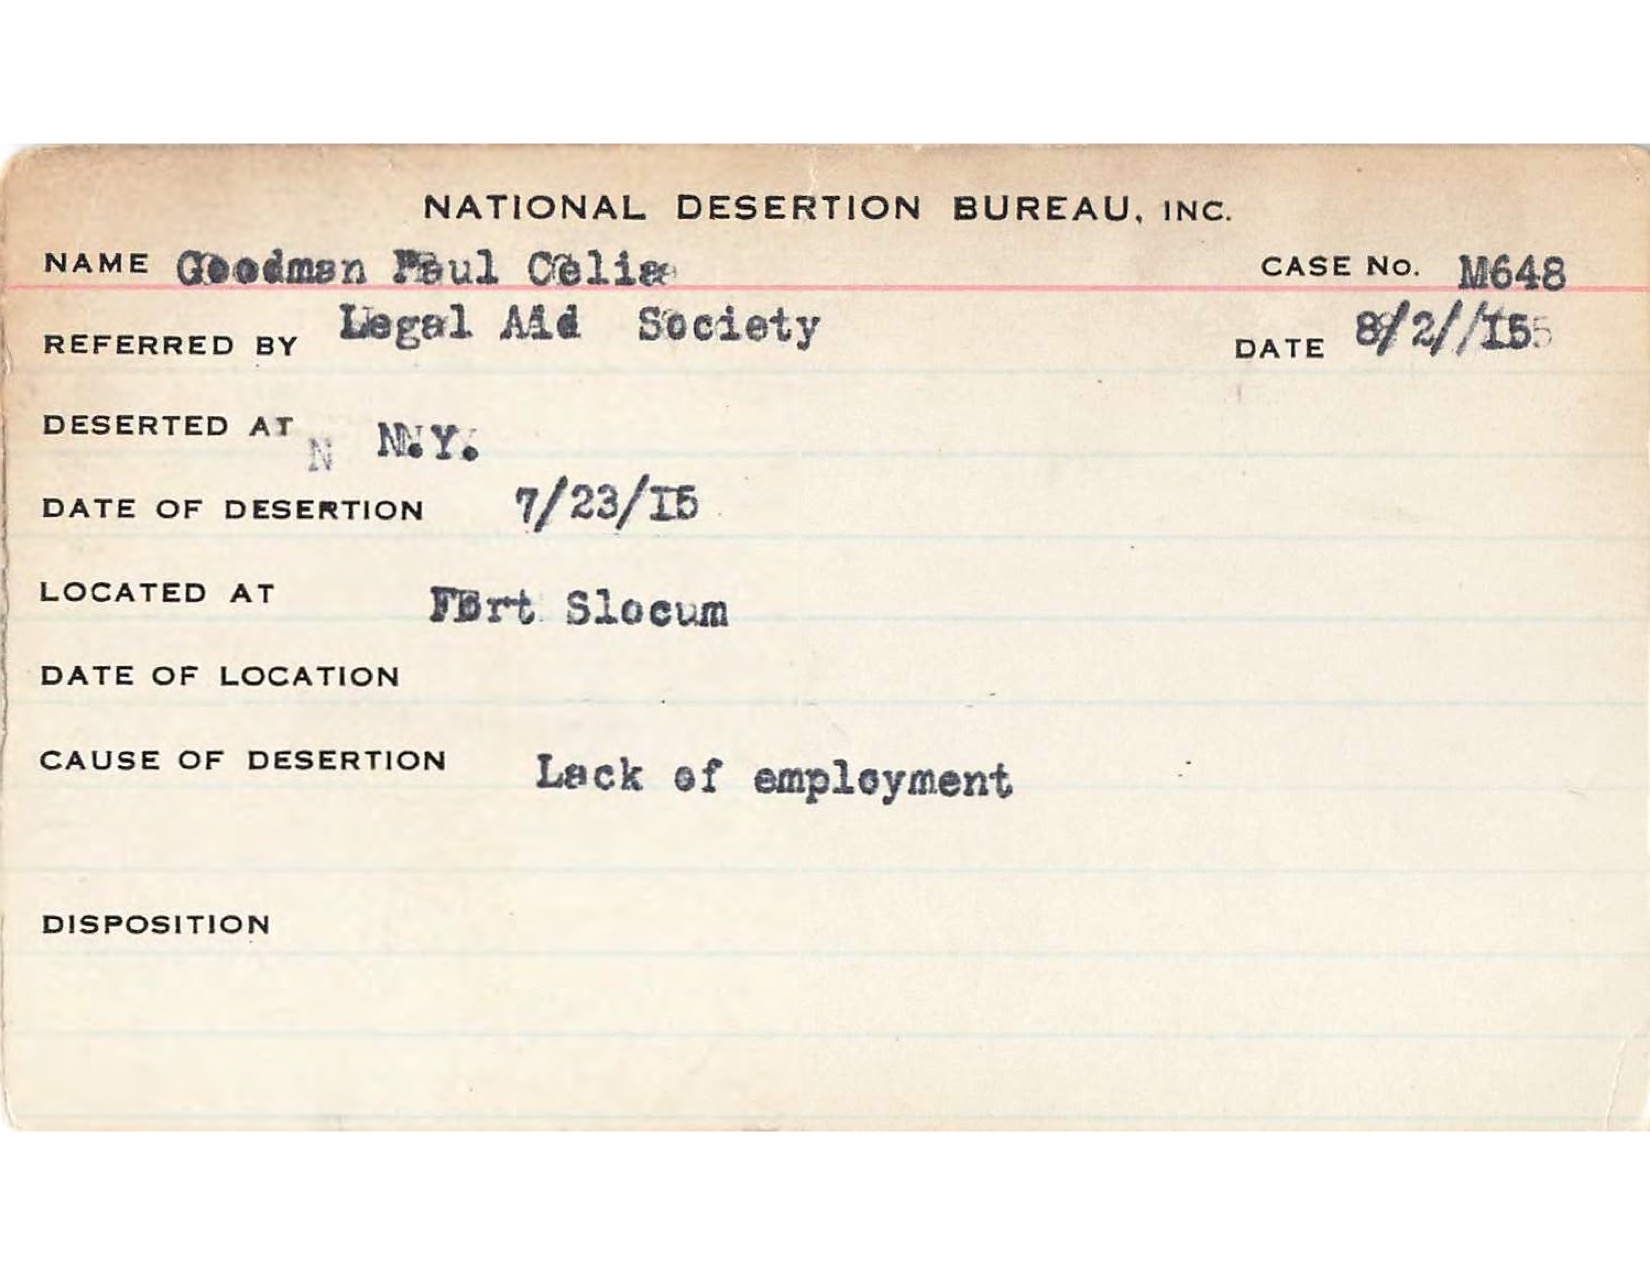 NATIONAL DESERTION BUREAU, INC.
NAME Goodman Paul Celia CASE No. M648
REFERRED BY Legal Aid Society DATE 8/2//I5
DESERTED AT N N.Y.
DATE OF DESERTION 7/23/I5
LOCATED AT Fort Slocum
DATE OF LOCATION
CAUSE OF DESERTION Lack of employment
DISPOSITION